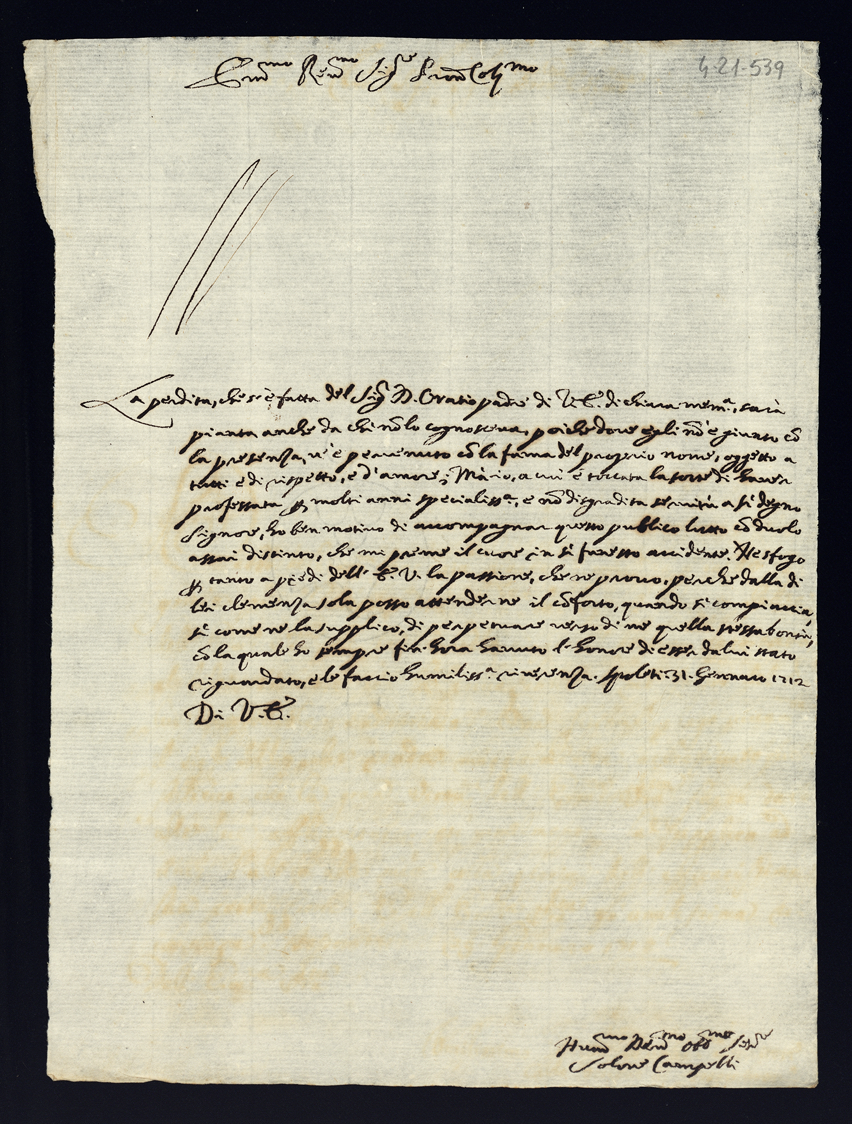 Em̄mo Rev̄mo Sig.re Pron̄ Col.mo
4-21-539
La perdita, che si è fatta del Sig.r D. Oratio padre di V.E. di chiara mem.a, sarà
pianta anche da chi nō lo cognosceva, poiche dove egli nō è giunto cō
la presenza, n'è pervenuto cō la fama del proprio nome, oggetto a
tutti e di rispetto, e d'amore; Mà io, a cui è toccata la sorte di haver
professata p molti anni specialiss.a, e nō disgradita servitù a sì degno
Signore, ho ben motivo di accompagnar questo publico lutto cō duolo
assai distinto, che mi preme il cuore in sì funesto accidente. Ne sfogo
p tanto a piedi dell' E.V. la passione, che ne provo, perche dalla di
lei clemenza sola posso attenderne il cōforto, quando si compiaccia,
sì come ne la supplico, di perpetuare verso di me quella stessa bontà,
cō la quale ho sempre fin hora havuto l'honore di esser da lui stato
riguardato, e le faccio humiliss.a riverenza. Spoleti 31. Gennaro 1712
Di V.E.
Hum̄mo Dev̄mo Obb̄mo Ser.re
Solone Campelli